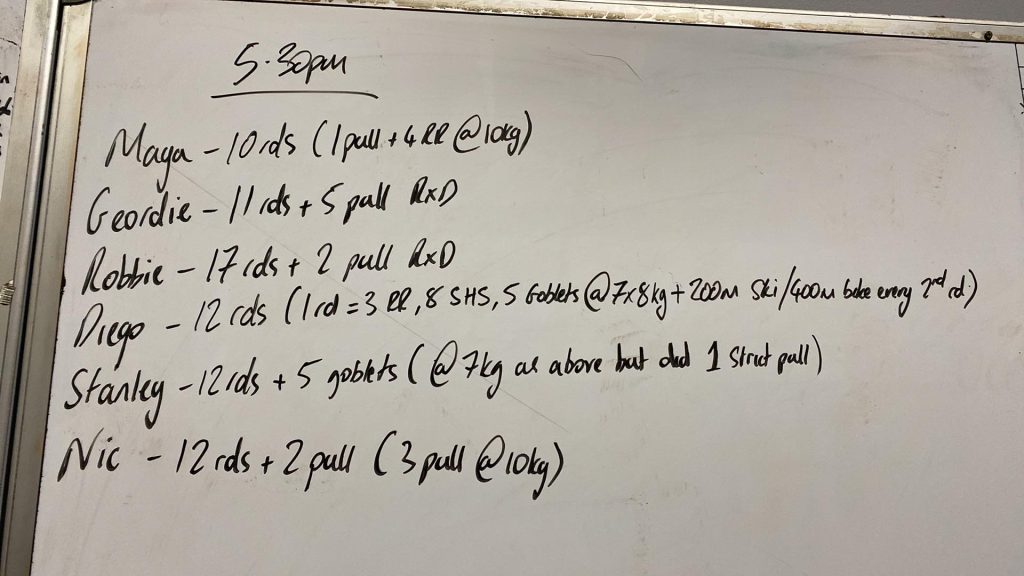 5.30pm
Maya - 10 rds (1 pull + 4 RR @ 10kg)
Geordie - 11 rds + 5 pull RxD
Robbie - 17 rds + 2 pull RxD
Diego - 12 rds (1 rd = 3 RR, 8 SHS, 5 Goblets @ 7x8kg + 200m Ski/400m bike every 2nd rd.)
Stanley - 12 rds + 5 goblets (@ 7kg as above but did 1 Strict pull)
Nic - 12 rds + 2 pull (3 pull @ 10kg)